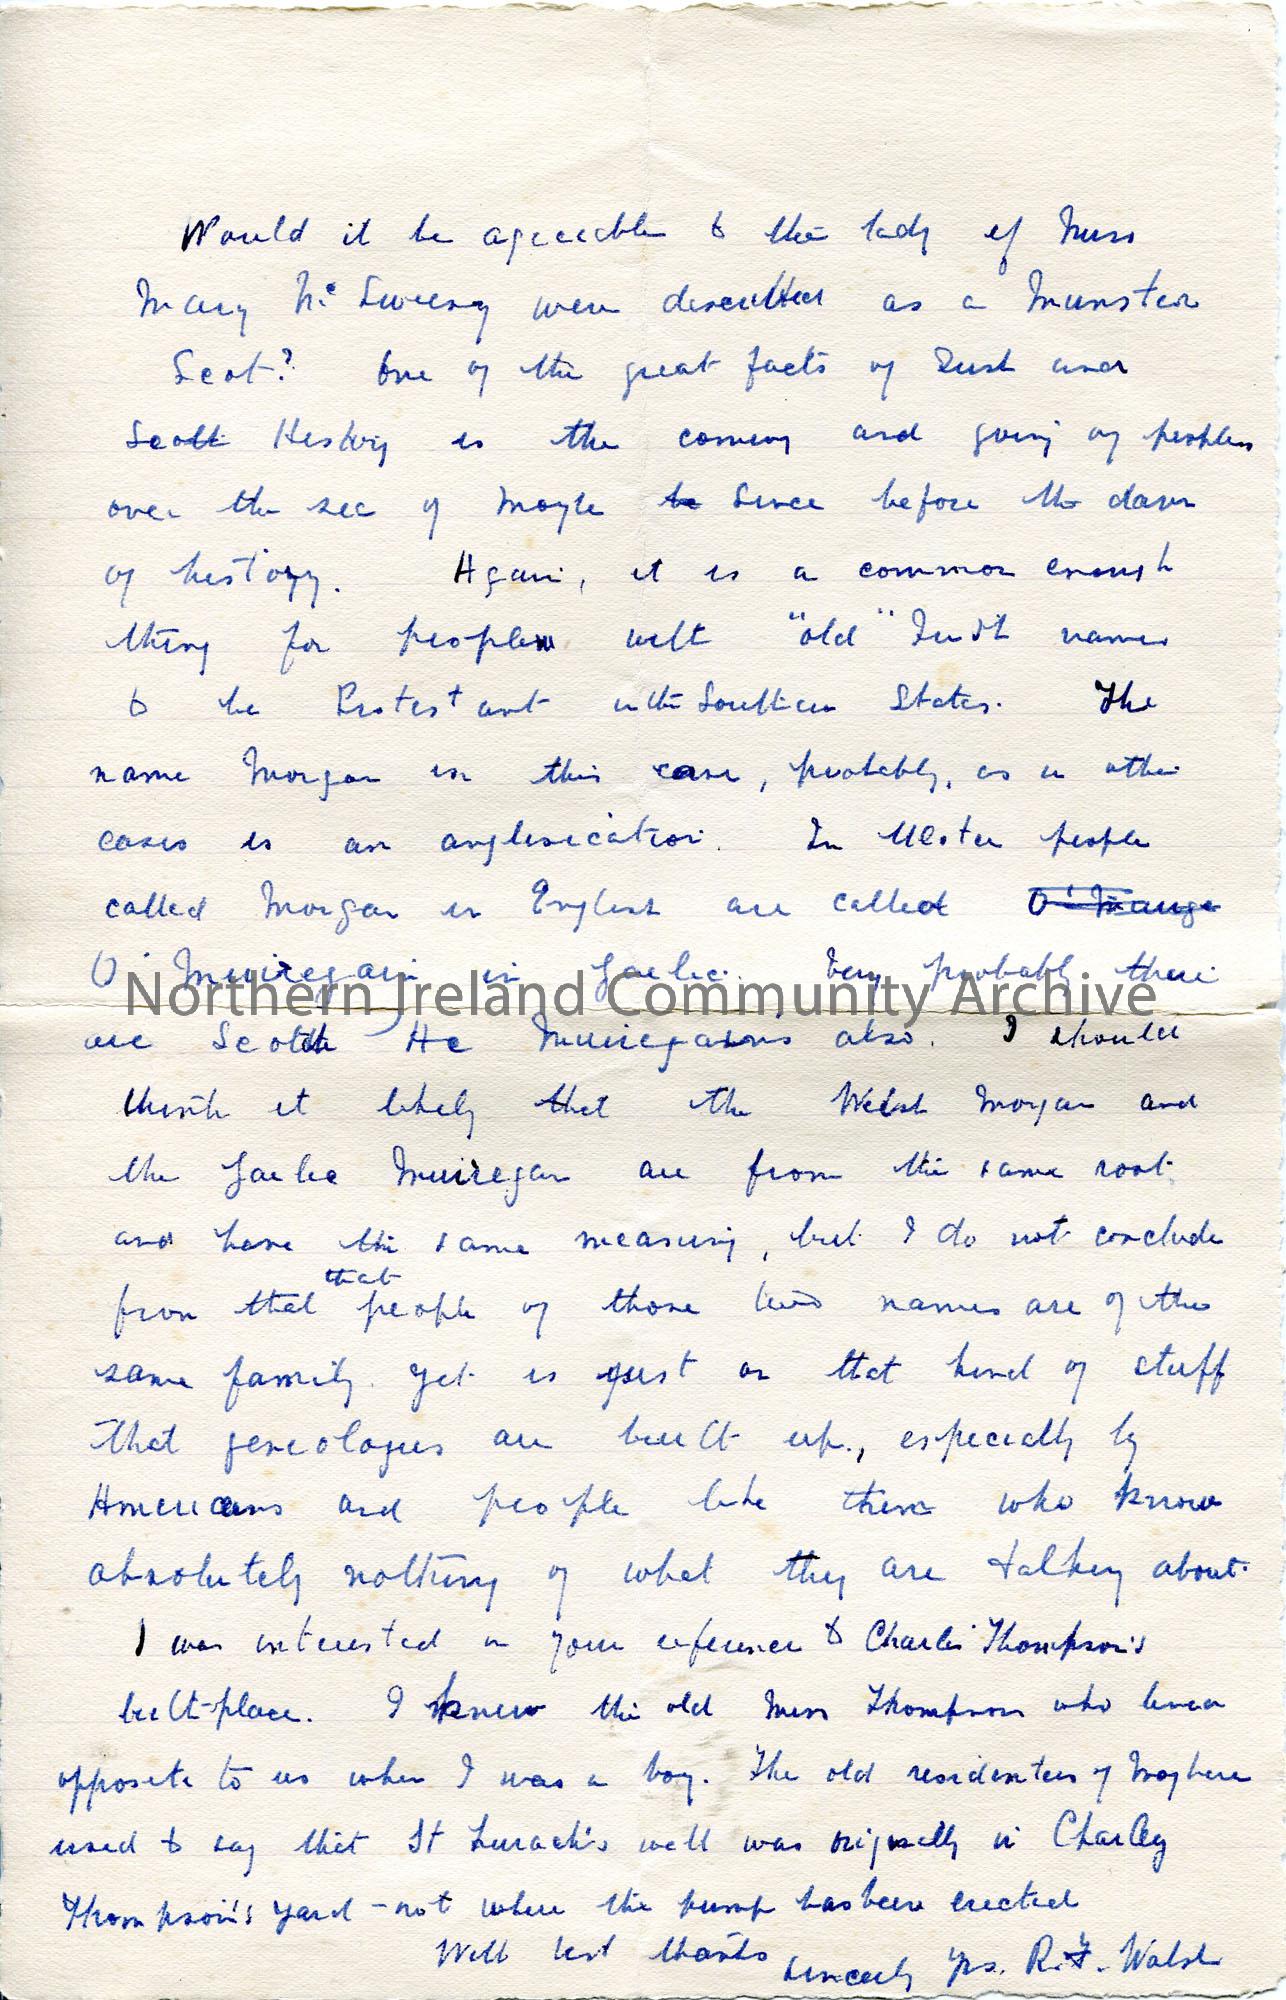 Would it be agreeable to the lady if Miss
Mary McSweeny were described as a Munster
Scot? One of the great facts of Irish and
Scott History is the coming and going of peoples
over the sea of Moyle to since before the dawn
of history. Again, it is a common enough
thing for people with "old" Irish names
to be Protestant in the Southern States. The
name Morgan in this case, probably, as in other
cases is an anglicication. In Ulster people
called Morgan in English are called
O'Muiregain in Gaelic. Very probably there
are Scotch Mc Muiregains also. I should
think it likely that the Welsh Morgan and
the Gaelic Muiregan are from the same root
and have the same meaning, but I do not conclude
from that that people of those two names are of the
same family. Yet is just on that kind of stuff
that geneologies are built up, especially by
Americans and people like them who know
absolutely nothing of what they are talking about.
I was interested in your reference to Charles Thompson's
birth-place. I knew the old Miss Thompson who lived
opposite to us when I was a boy. The old residenters of Maghera
used to say that St Lurach's well was originally in Charley
Thompson's yard - not where the pump has been erected
With best thanks sincerely yrs. R.F. Walsh
Northern Ireland Community Archive